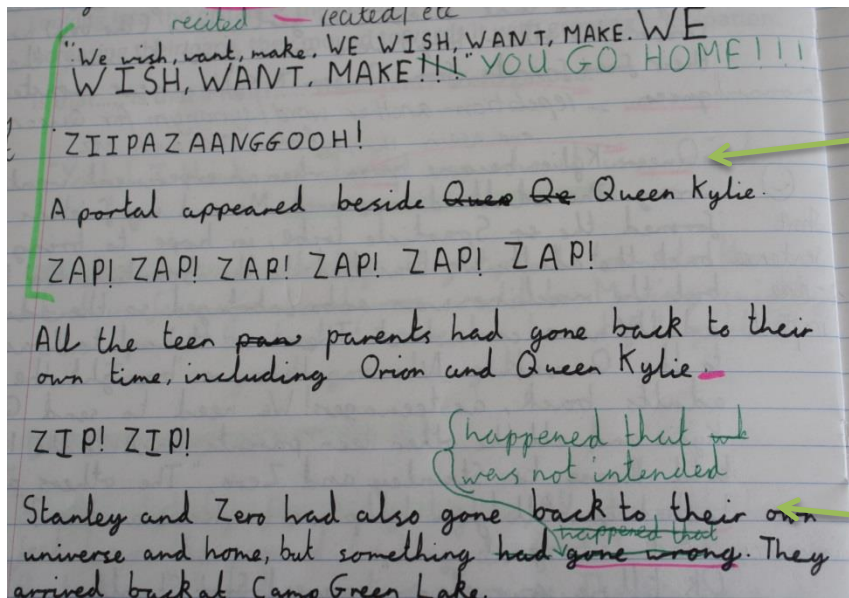 recited recited/ etc
"We wish, want, make. WE WISH, WANT, MAKE. WE
WISH, WANT, MAKE!!!" YOU GO HOME!!!
ZIIPAZAANGGOOH!
A portal appeared beside Quee Qe Queen Kylie.
ZAP! ZAP! ZAP! ZAP! ZAP! ZAP!
All the teen paw parents had gone back to their
own time, including Orion and Queen Kylie.
ZIP! ZIP!
happened that
was not intended
Stanley and Zero had also gone back to their own
happened that
universe and home, but something had gone wrong. They
arrived back at Camp Green Lake.